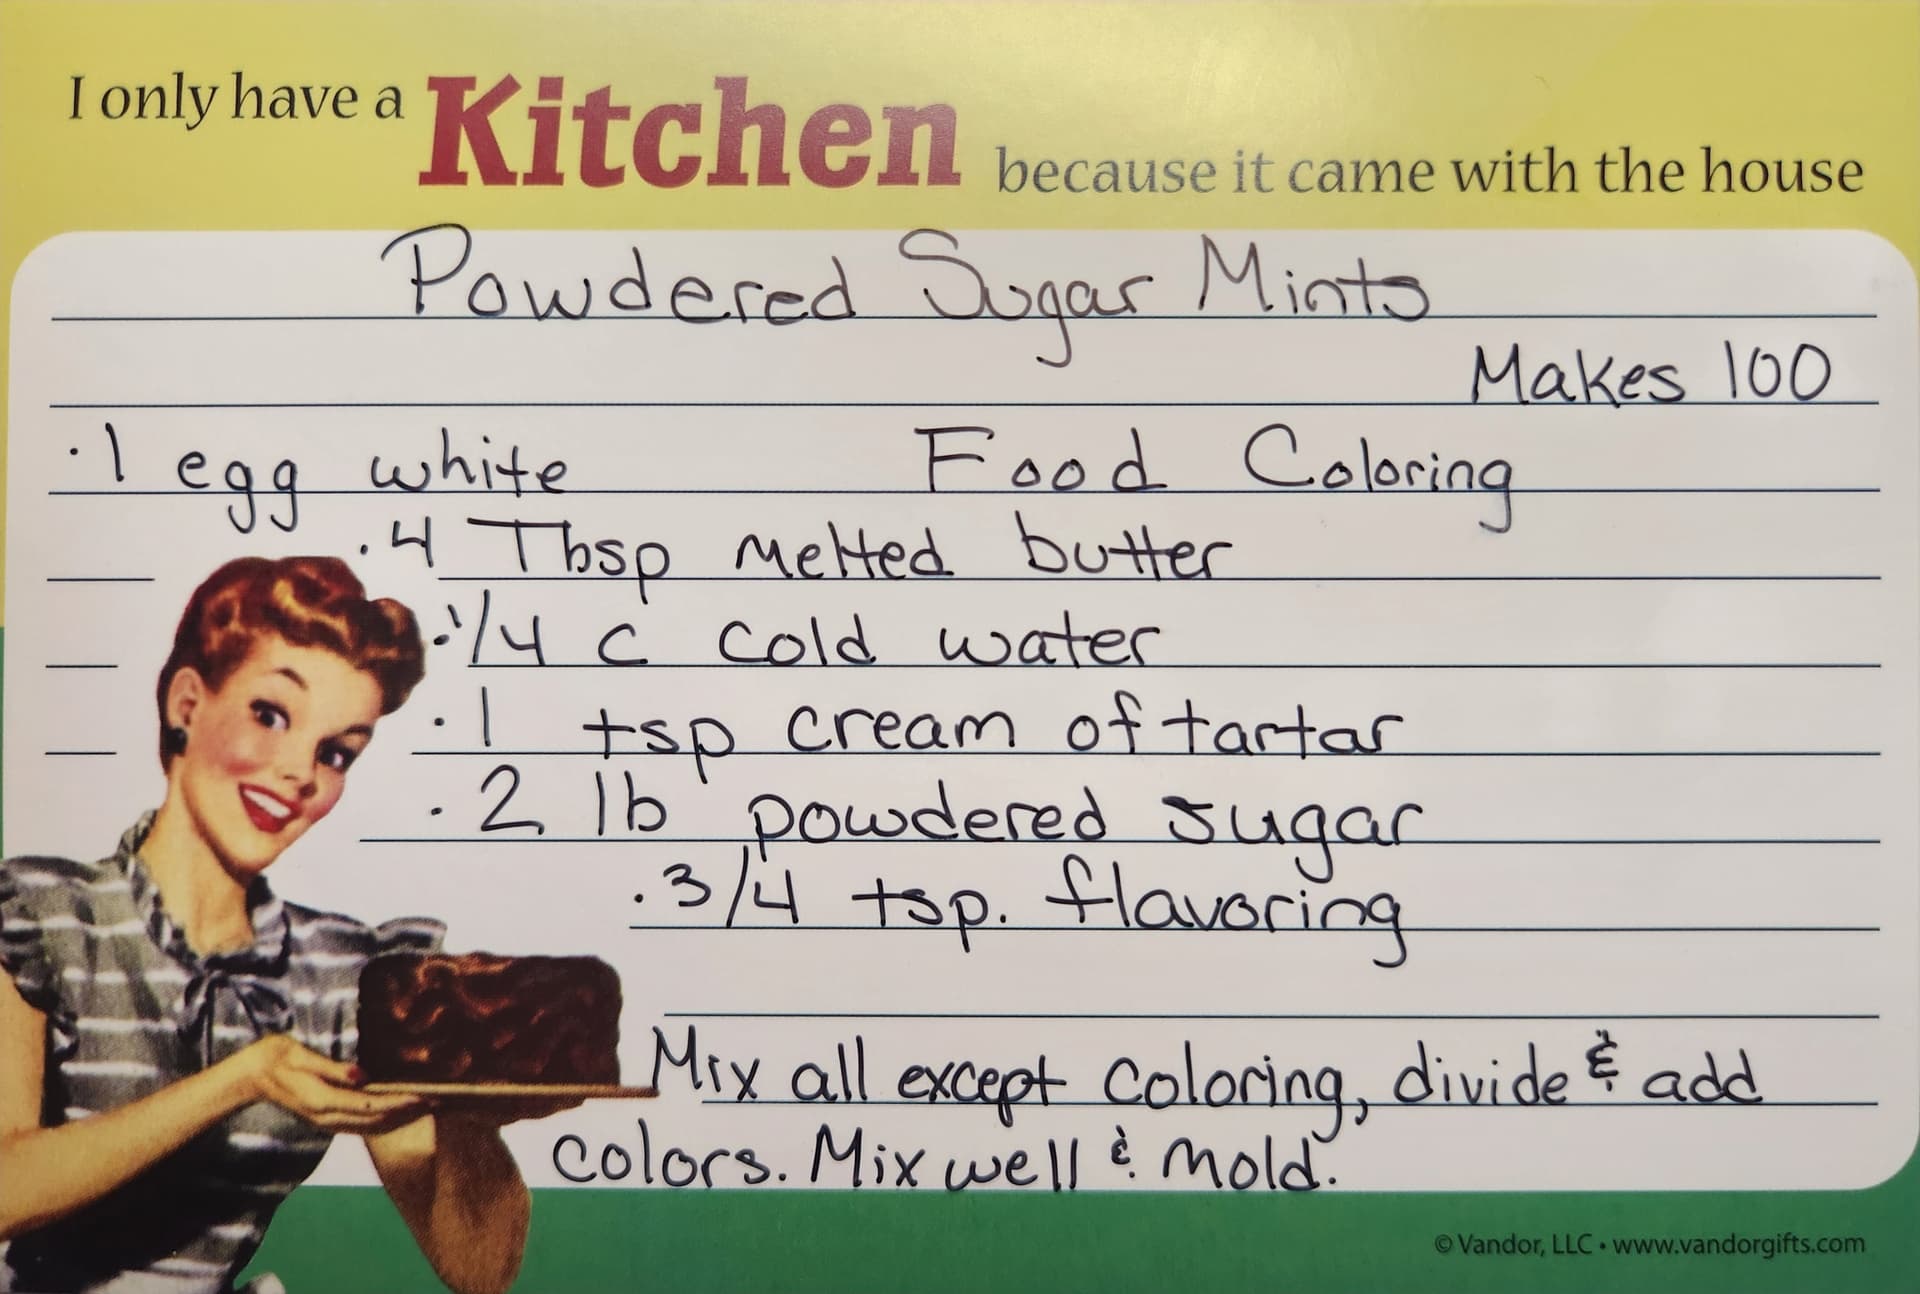 I only have a Kitchen because it came with the house
Powdered Sugar Mints
Makes 100
· 1 egg white Food Coloring
· 4 Tbsp melted butter
· 1/4 c cold water
· 1 tsp cream of tartar
· 2 lb powdered sugar
· 3/4 tsp. flavoring
Mix all except coloring, divide & add
colors. Mix well & mold.
© Vandor, LLC • www.vandorgifts.com